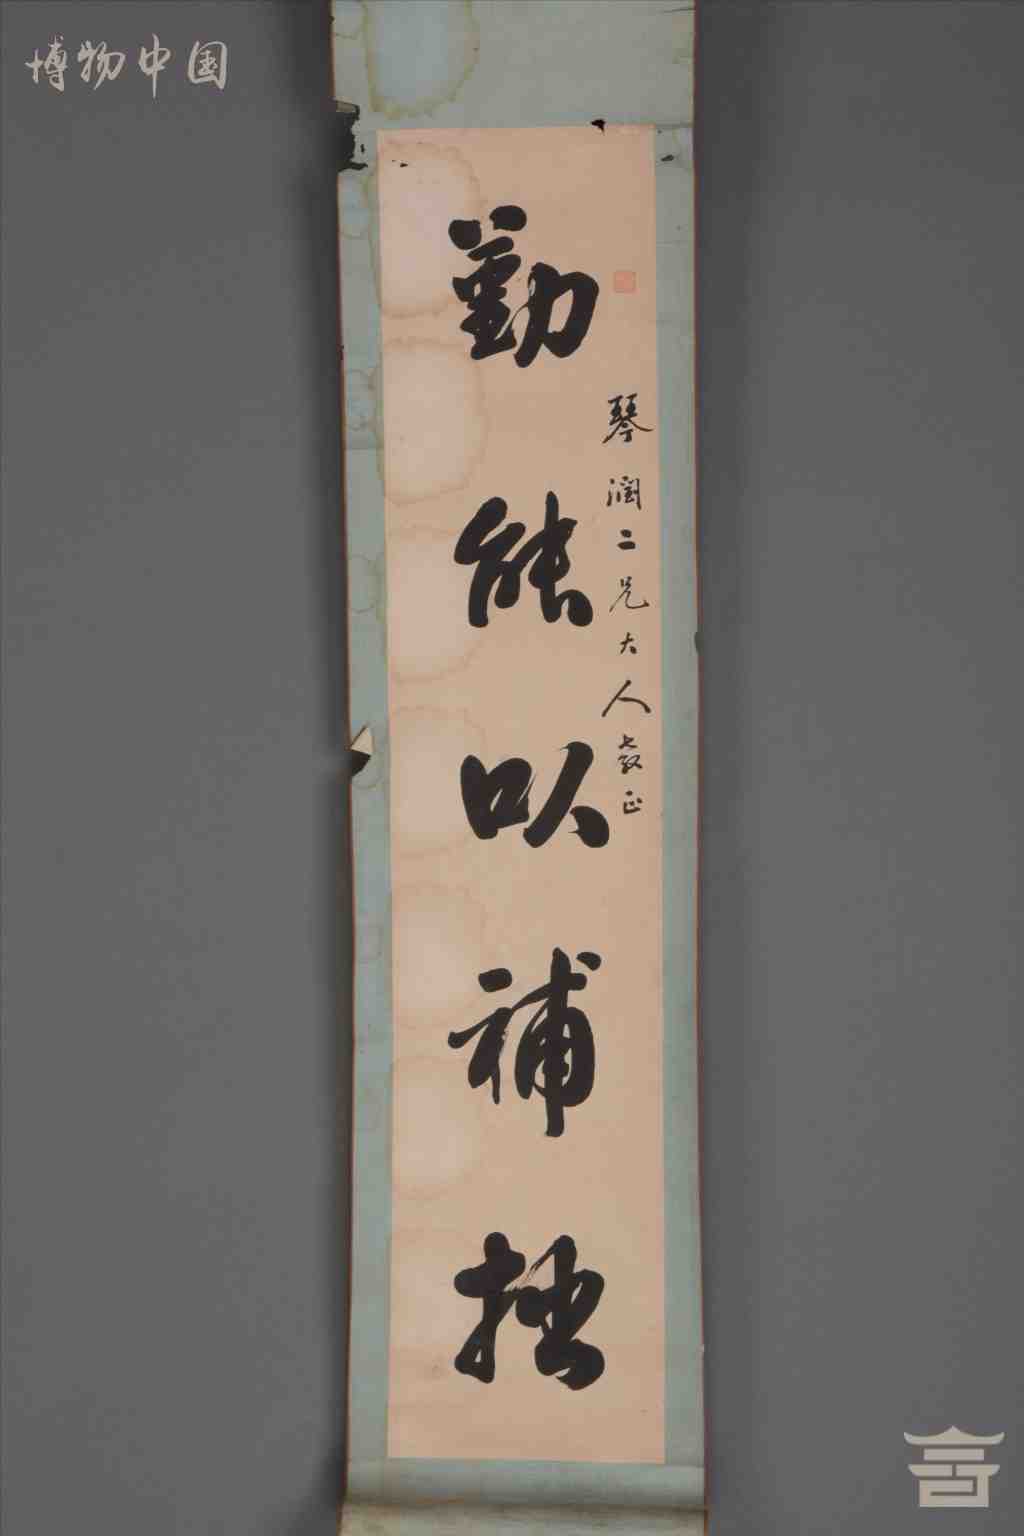 博物中国
琴澗二兄大人教正
勤能以補拙